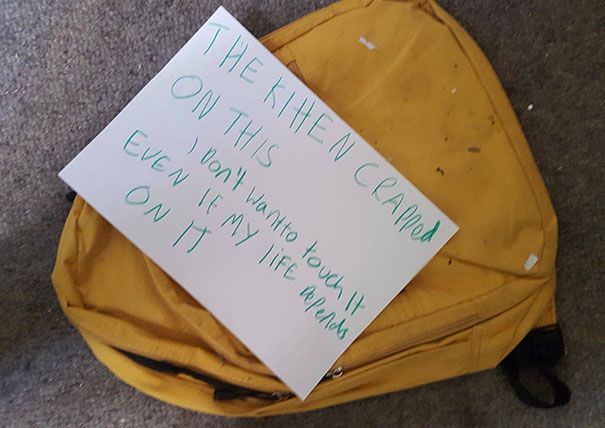 THE KITTEN CRAPPED
ON THIS
I DON'T WANT TO TOUCH IT
EVEN IF MY LIFE DEPENDS
ON IT